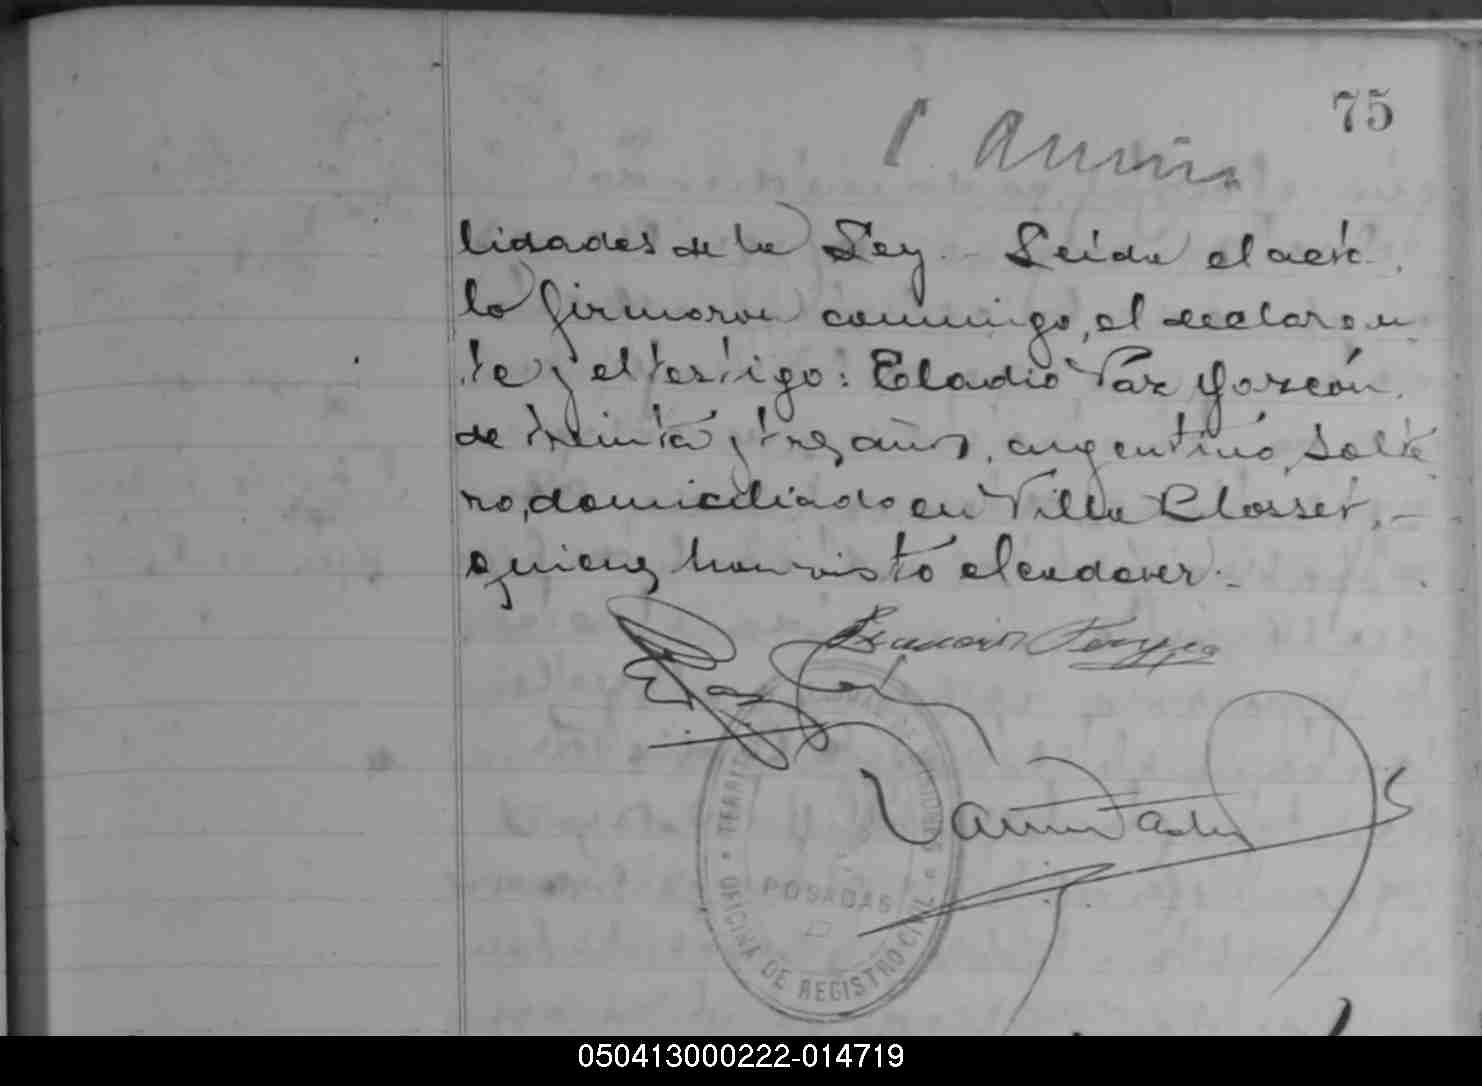 75
lidades de la Ley. - Leida el acta.
lo firmaron conmigo, el declaran
te y el testigo: Eladio Paz Garzón.
de treinta y tres años, argentino, solte
ro, domiciliado en Villa Blosset, -
quienes han visto el cadaver. -
POSADAS
OFICINA DE REGISTRO CIVIL
050413000222-014719